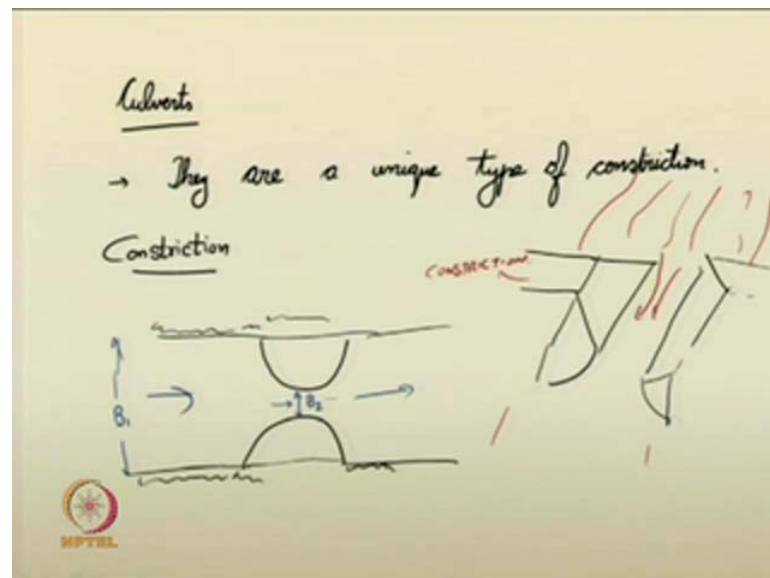 Culverts
→ They are a unique type of constriction.
Constriction
CONSTRICTION
B₁
B₂
NPTEL